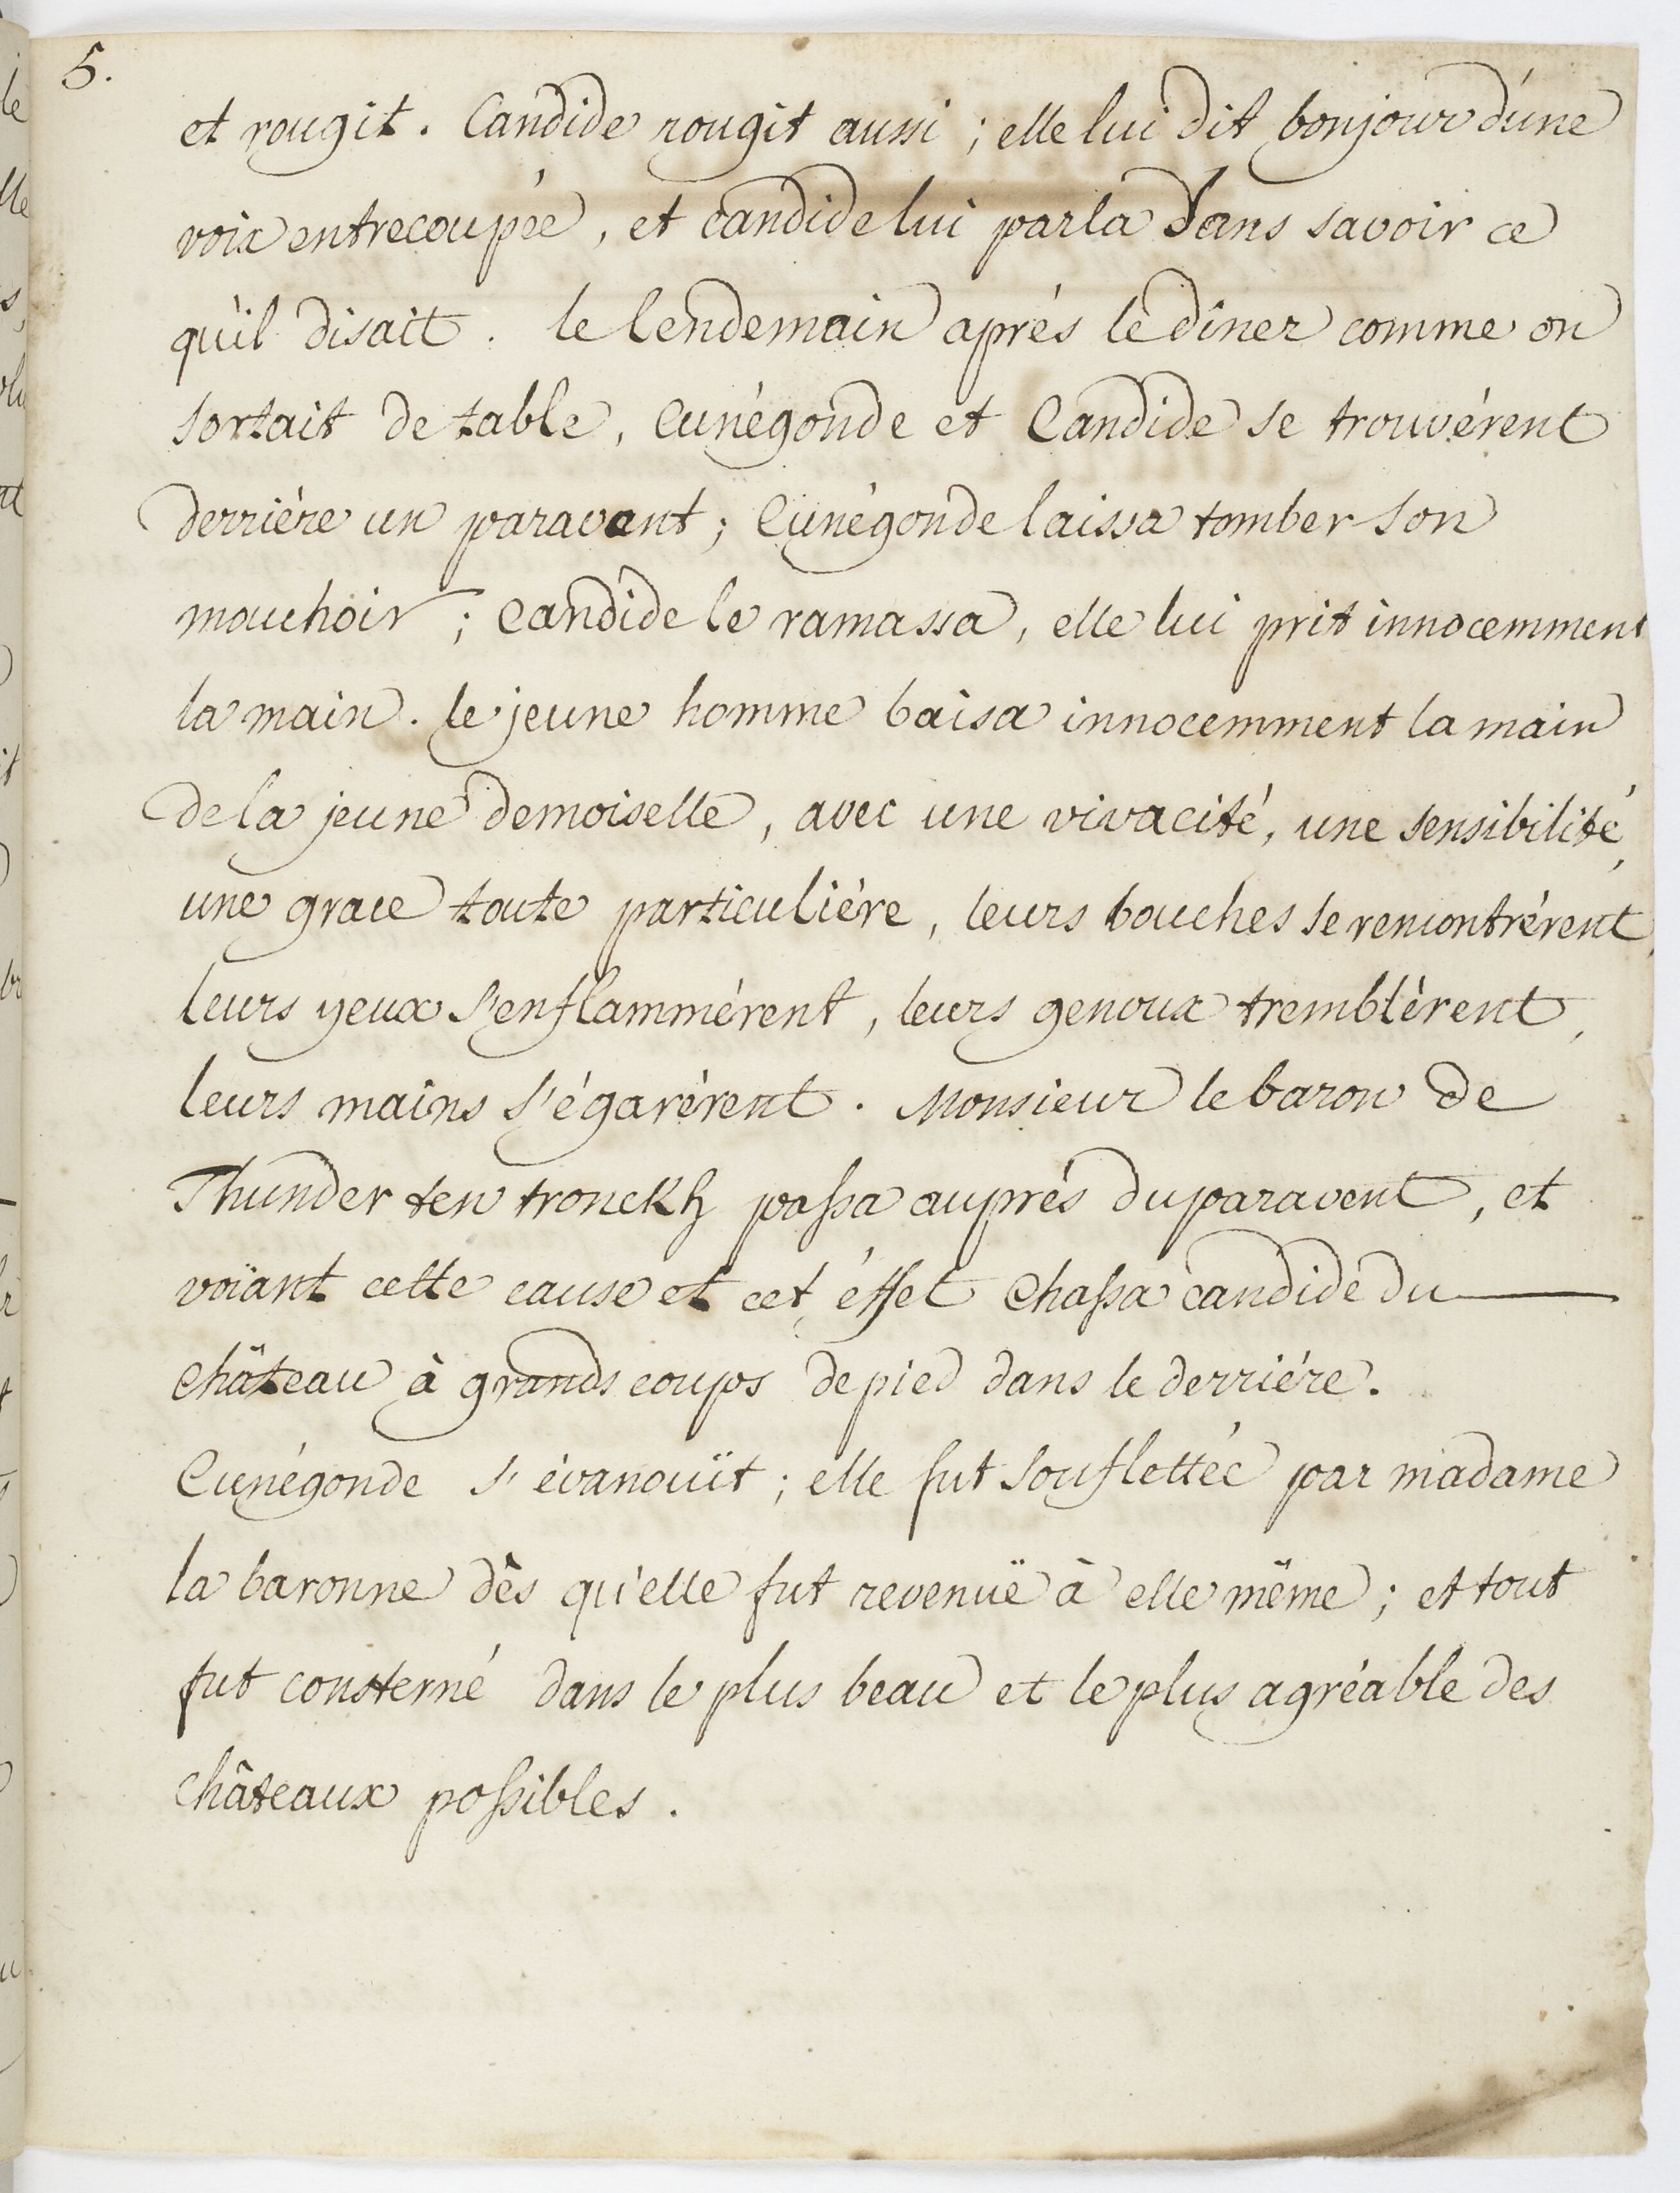 5.
et rougit. Candide rougit aussi; elle lui dit bonjour d'une
voix entrecoupée, et candide lui parla sans savoir ce
qu'il disait. le lendemain aprés le dîner comme on
sortait de table, Cunégonde et Candide se trouvérent
derriére un paravant; Cunégonde laissa tomber son
mouchoir; Candide le ramassa, elle lui prit innocemment
la main. le jeune homme baisa innocemment la main
de la jeune demoiselle, avec une vivacité, une sensibilité,
une grace toute particuliére, leurs bouches se rencontrérent,
leurs yeux s'enflammérent, leurs genoux tremblérent,
leurs mains s'égarérent. Monsieur le baron de
Thunder ten tronckh passa auprés du paravent, et
voïant cette cause et cet éffet Chassa candide du
Château à grands coups de pied dans le derriére.
Cunégonde s'évanouït; elle fut souflettée par madame
la baronne dès qu'elle fut revenuë à elle même; et tout
fut consterné dans le plus beau et le plus agréable des
châteaux possibles.